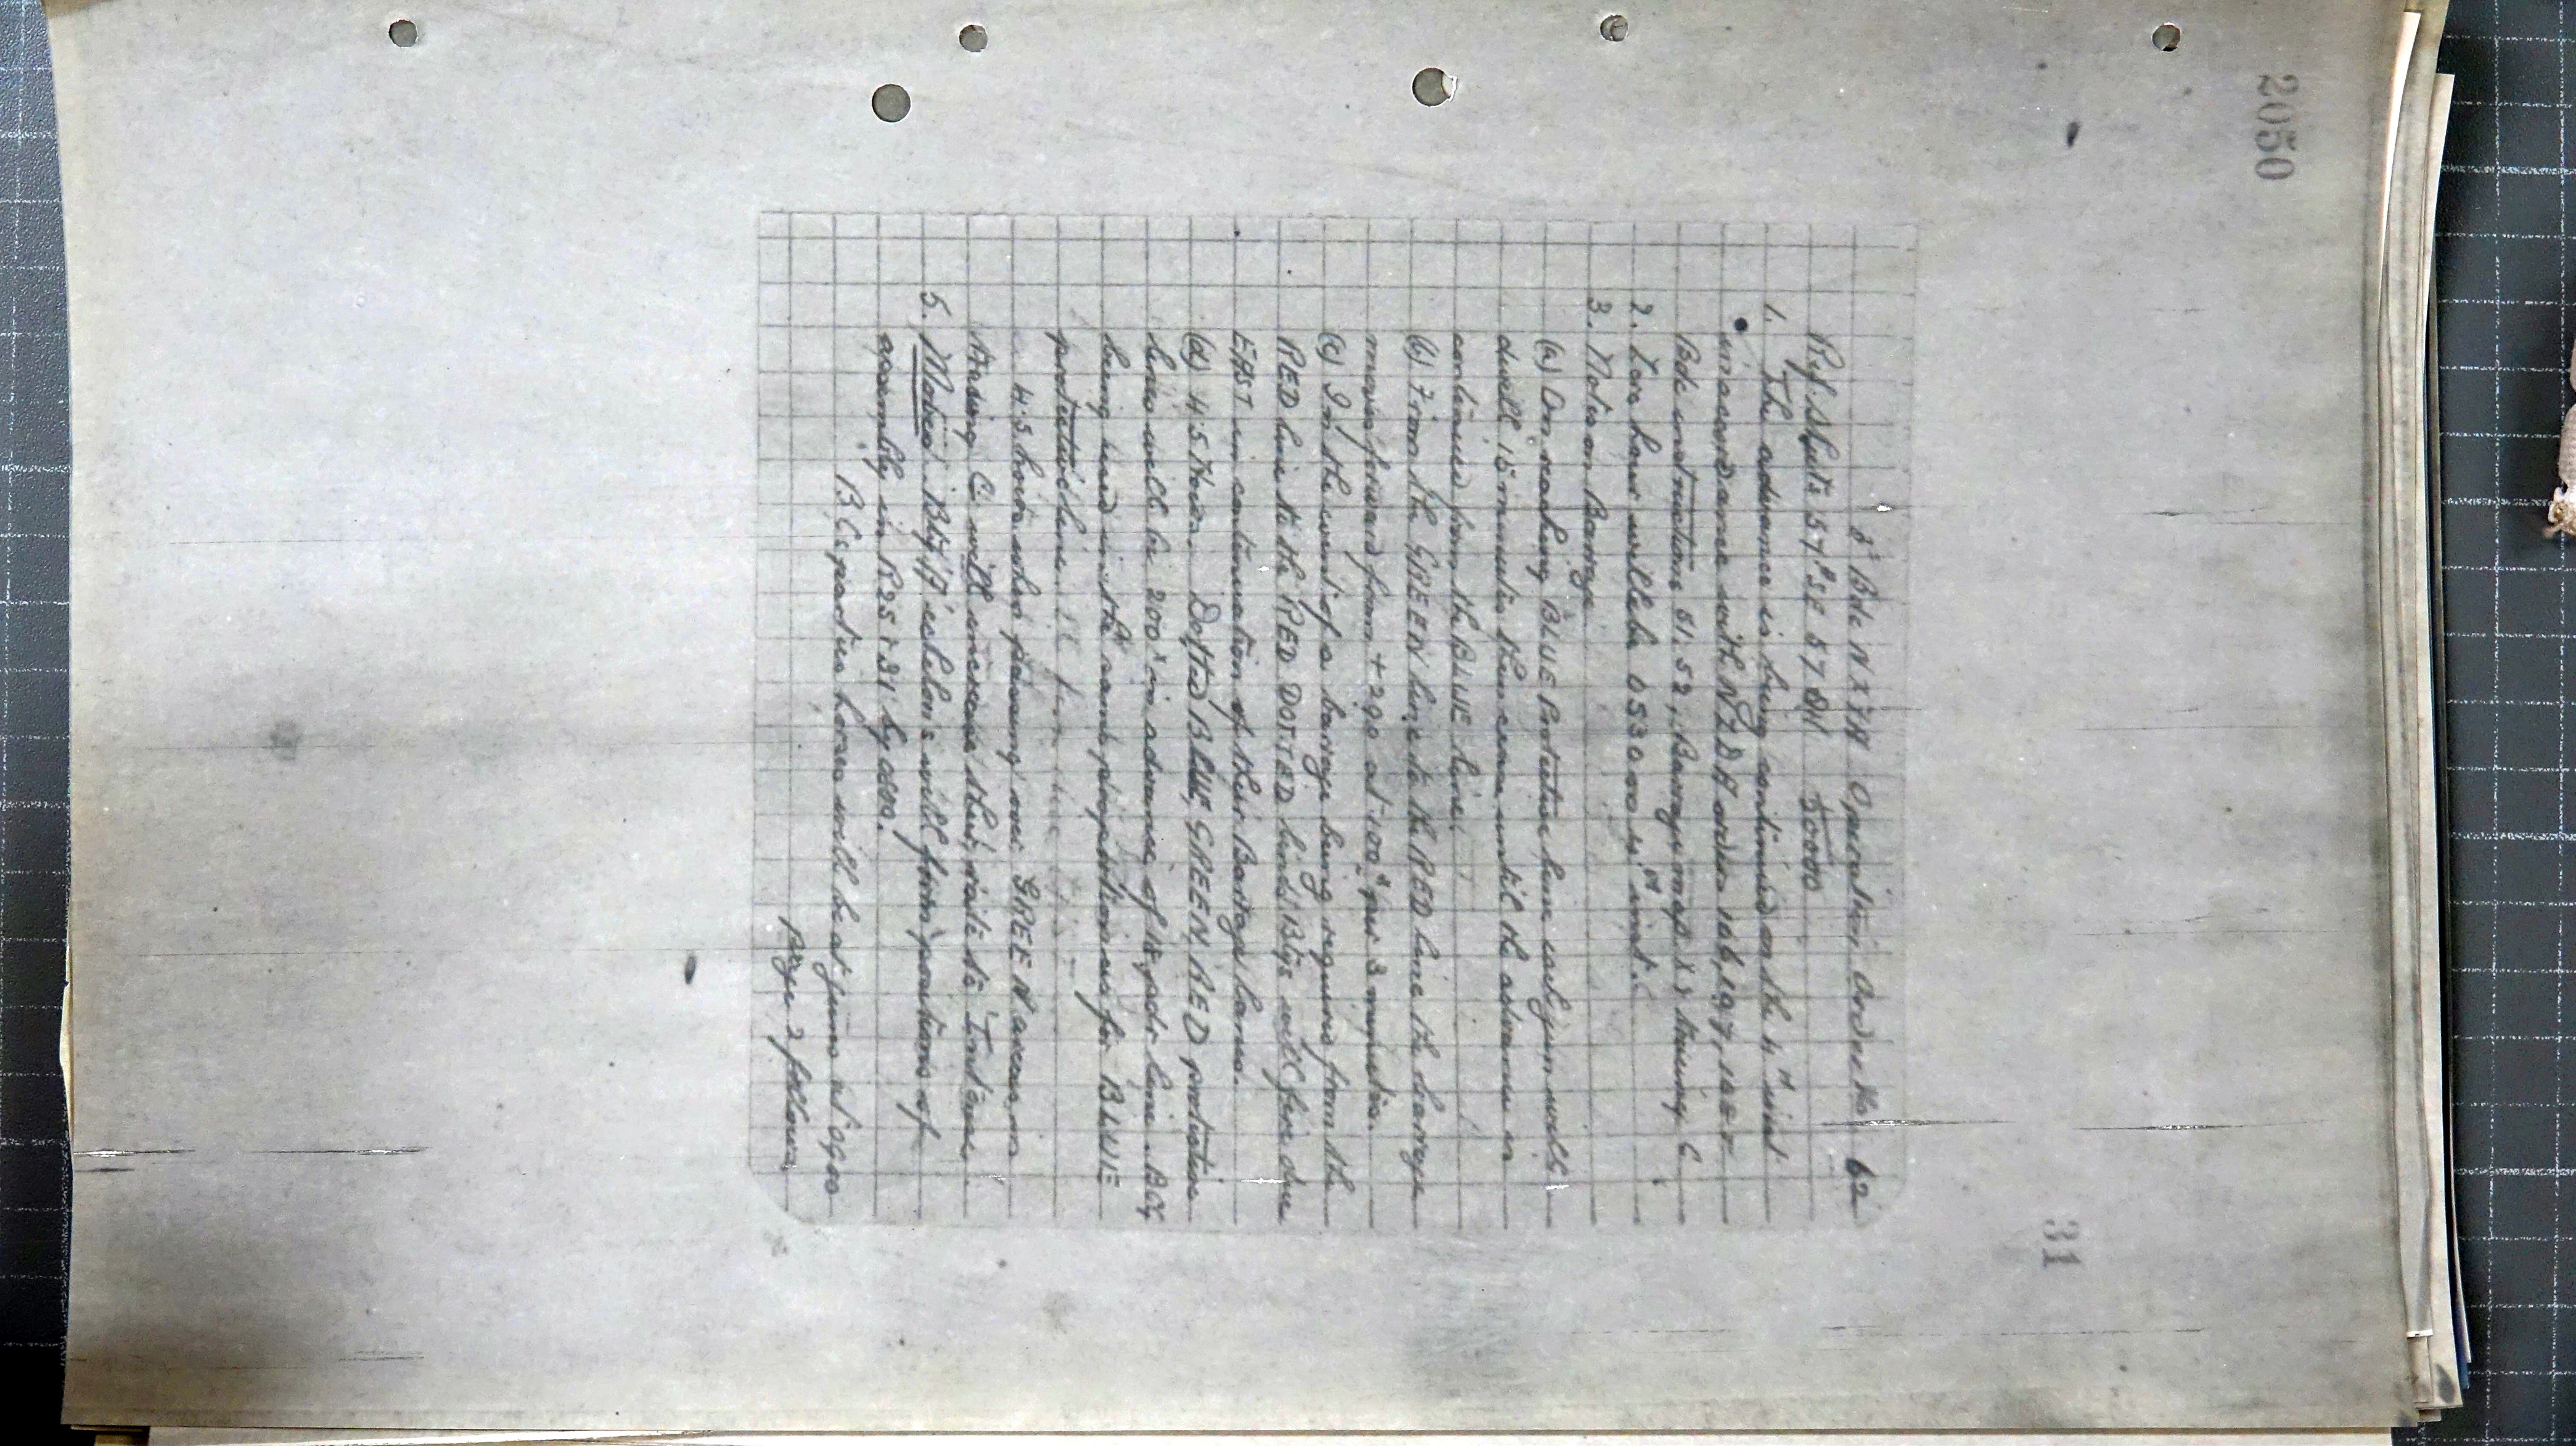 2050
31
Bde NZFA Operation Order No 62
Ref. Sheets 57B SE 57 A 1/50000
1. The advance is being continued on the 4th inst
in accordance with NZDA orders 196, 197, 198 &
Bde instructions 51, 52, Barrage map X &
2. Zero hour will be 0530 on 4th inst.
3. Notes on Barrage
(a) On reaching BLUE Protective line each gun will
dwell 15 minutes then cease until the advance is
continued from the BLUE line.
(b) From the GREEN line to the RED line the barrage
moves forward from + 290 at 100x per 3 minutes.
(c) In the event of a barrage being required from the
RED line to the RED DOTTED line Btys will fire due
EAST in continuation of their Barrage lanes.
(d) 4.5 Hows. Dotted BLUE, GREEN, RED protective
lines will be 200x in advance of 18 pdr line
being used in the same proportion as for BLUE
protective line
4.5 hows when passing over GREEN area, in
will increase their rate to Intense
5. Moves. Btys 'A' echelons will form portions of
assembly in R25 & 31 by 0800.
B.C's parties horses will be at guns at 0900
page 2 follows